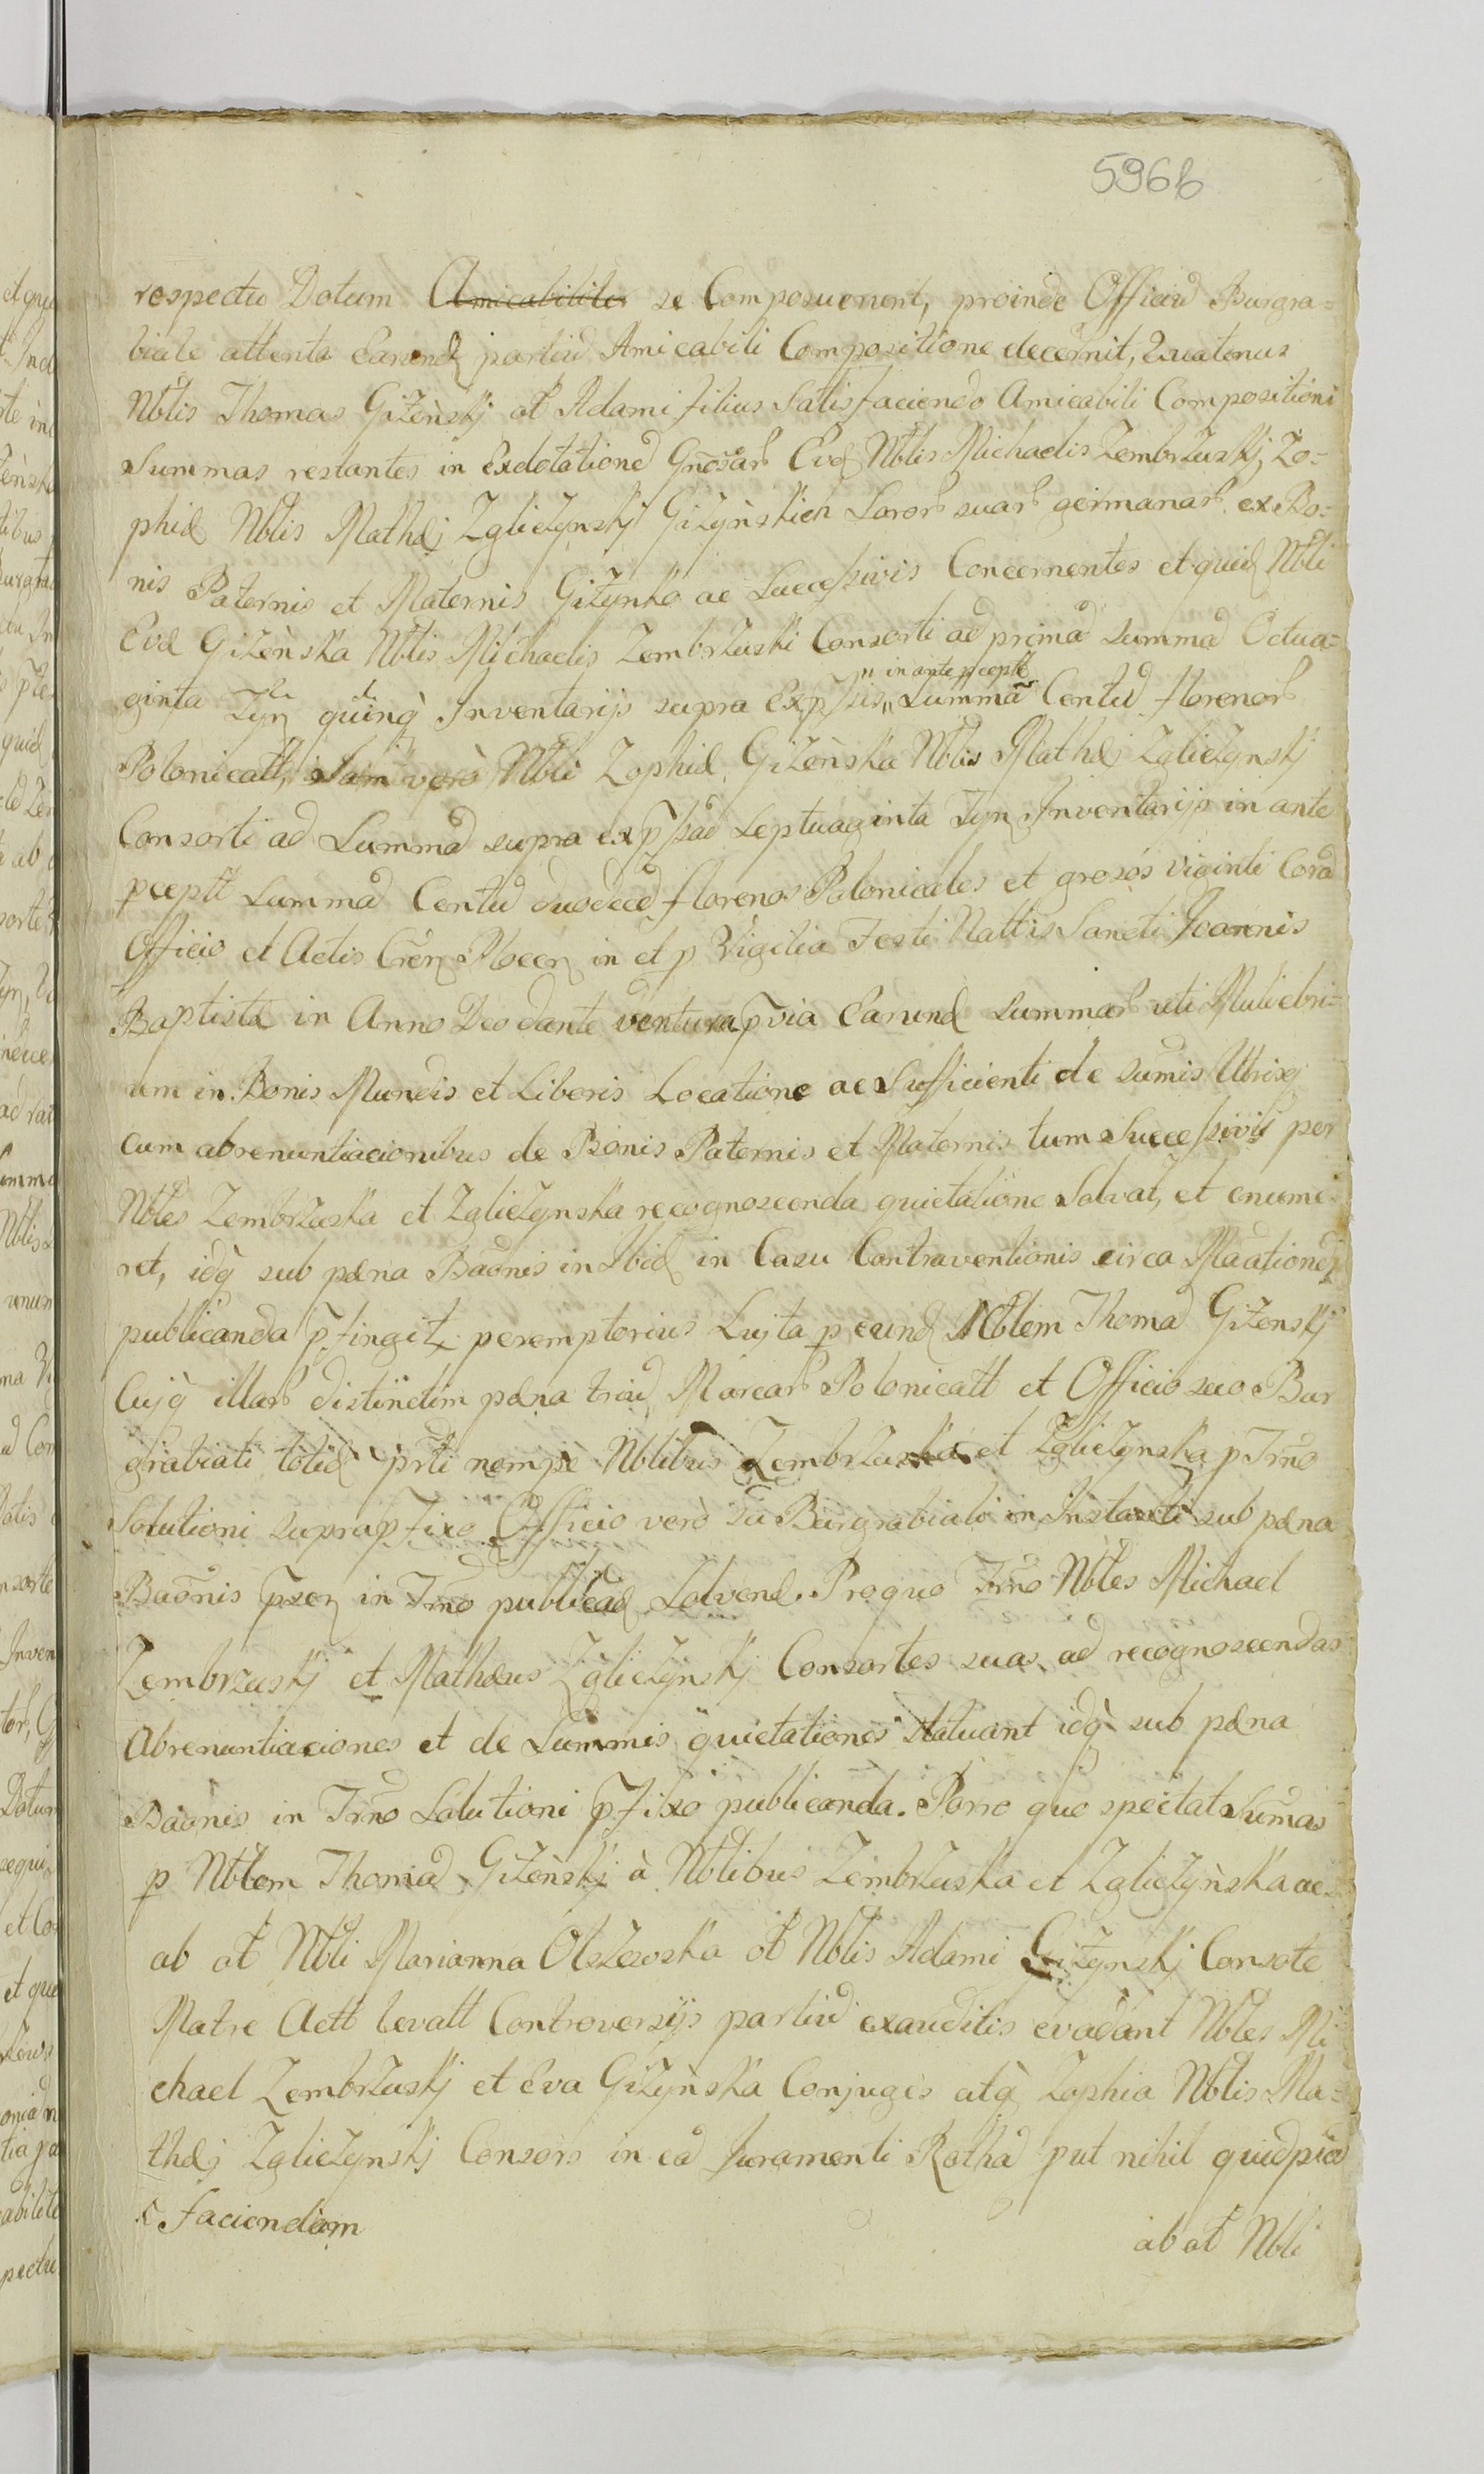 596b
respectu Dotum Amicabiliter se Composuerunt, proinde Officiũ Burgra=
biale attenta Earund partiũ Amicabili Compositione decernit, Quatenus
Nblis Thomas Giżeński ol Adami filius Satisfaciendo Amicabili Compositioni
Summas restantes in Exdotationẽ Gnosar Evæ Nblis Michaelis Zembrzuskj, Zo=
phiæ Nblis Mathæj Zglieżynskj Giżyńskich Soror suar germanar ex Bo=
nis Paternis et Maternis Giżynko ac Successivis Concernentes et quid Nbli
Evæ Giżeńska Nblis Michaelis Zembrzuski Consorti ad primã Summã Octua=
ginta Tyn quinq Inventarijs supra Expssis „ in ante pceptt „ Summã Centũ florenor
Polonicall, Jam verò Nbli Zophiæ Giżeńska Nblis Mathæj Zglieżynskj
Consorti ad Summã supra expssã Septuaginta Tyn Inventarijs in ante
pceptt Summã Centũ duodecĩ florenos Polonicales et grosos viginti Corã
Officio et Actis Cren Plocen in et p Vigilia Festi Nattis Sancti Joannis
Baptistæ in Anno Deo dante ventura pvia Earund Summar uti Muliebri=
um in Bonis Mundis et Liberis Locatione ac Sufficienti de sumis Utrisq
cum abrenuntiacionibus de Bonis Paternis et Maternis tum Successivis per
Nbles Zembrzuska et Zglieżynska recognoscenda quietatione Solvat, et enume
ret, idq sub pæna Baonis in Ibid in Casu Contraventionis circa
publicanda pfingit peremptorius Lujta p eund Nblem Thomã Giżenskj
Cujq illar distinctim pæna triũ Marcar Polonicall et Officio suo Bur
grabiali totid prti nempe Nblibus Zembrzuska et Zglieżynska p Trno
Solutioni supra pfixo Officio verò suo Burgrabiali in Instanti sub pæna
Baonis psen in Trno publicand Solvend. Pro quo Trno Nbles Michael
Zembrzuskj et Mathæus Zglieżynskj Consortes suas ad recognoscendas
Abrenuntiaciones et de Summis quietationes Statuant idq sub pæna
Baonis in Trno Solutioni pfixo publicanda. Porro quo spectat Sumas
p Nblem Thomã Giżeńskj à Nblibus Zembrzuska et Zglieżyńska ac
ab ol Nbli Marianna Olszewska ol Nblis Adami Giżynskj Consote
Matre Actt levatt Controversijs partiũ exauditis evadant Nbles Mi
chael Zembrzuskj et Eva Giżyńska Conjuges atq Zophia Nblis Ma=
thæj Zglieżynskj Consors in eã Juramenti Rothã put nihil quidpiã
faciendam
ab ol Nbli